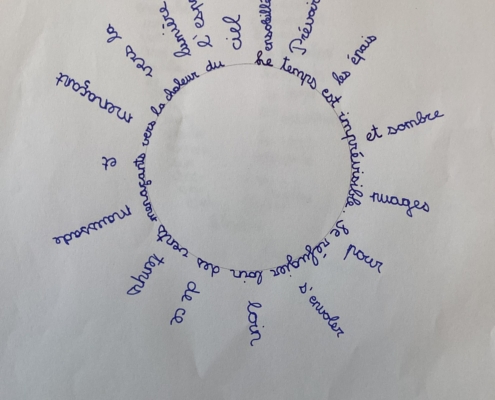 Le temps est imprévisible. Se réfugier loin des vents menaçants vers la chaleur du
ciel
les épais
et sombre
nuages
pour
s'envoler
loin
de ce
temps
maussade
et
menaçant
vers la
lumière